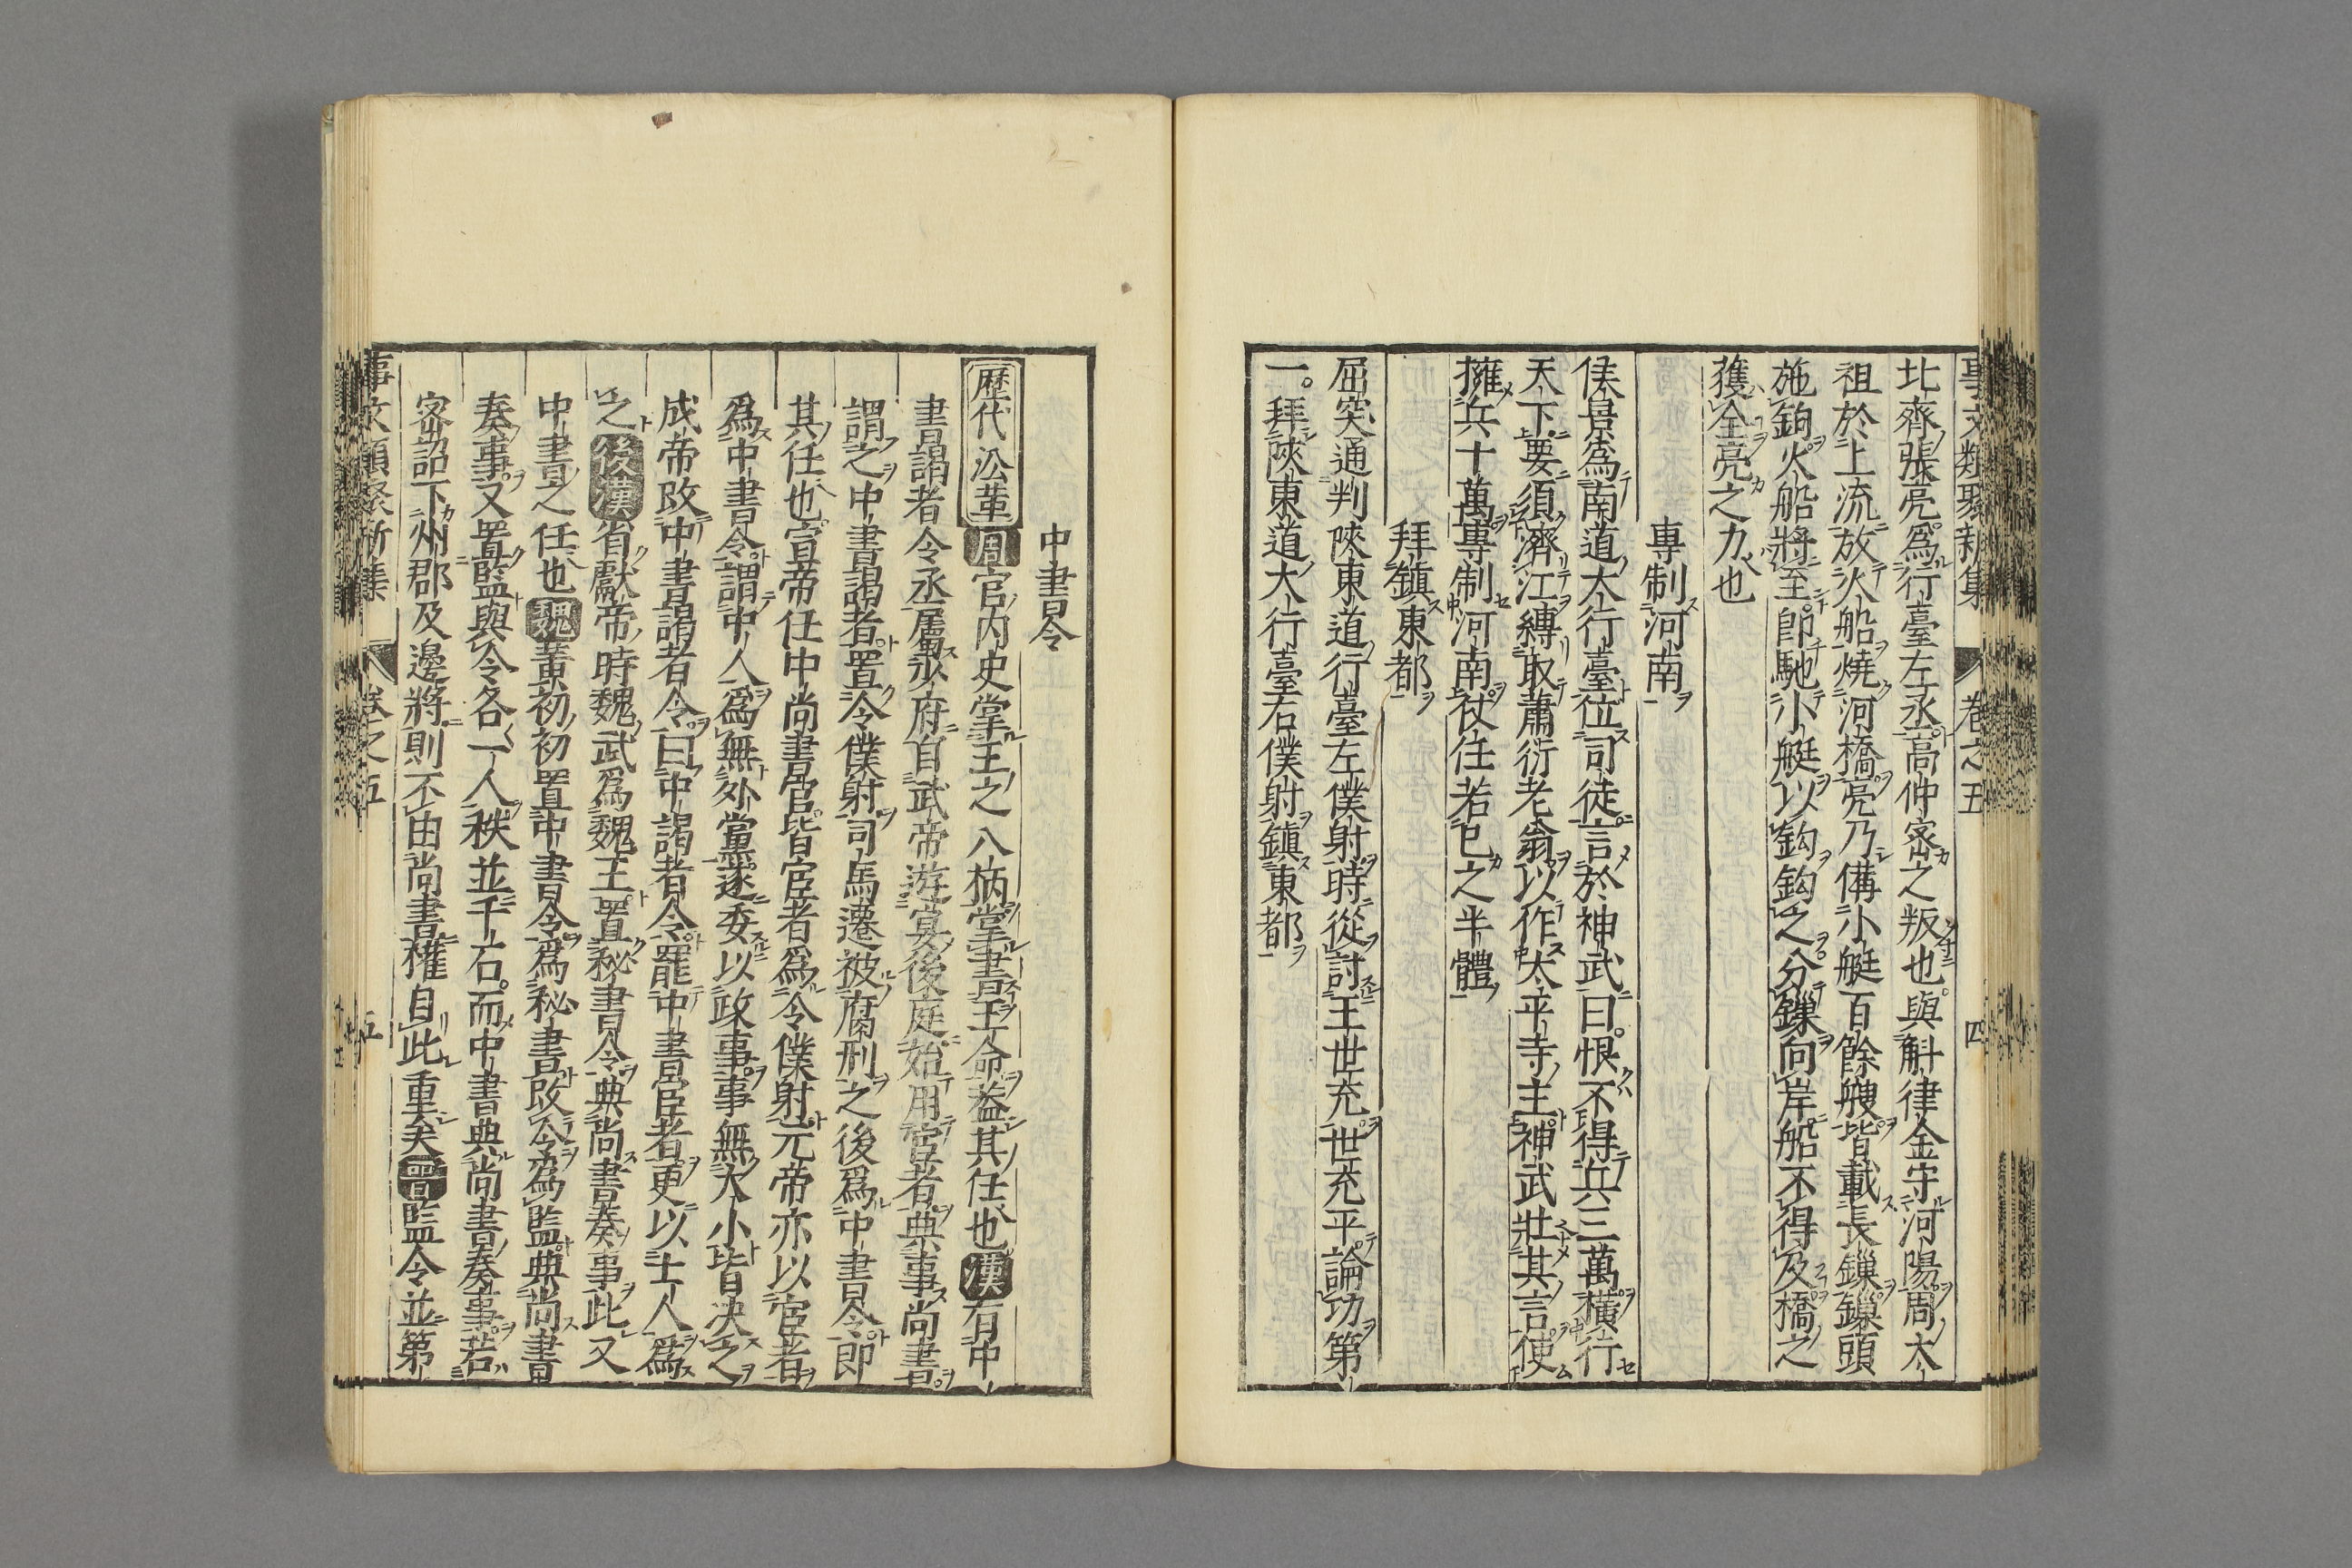 事文類聚新集 卷之五 四
北齊張亮爲行臺左丞高仲宻之叛也與斛律金守河陽周太
祖於上流放火船燒河橋亮乃俻小艇百餘艘皆載長鏁鏁頭
施鉤火船將至即馳小艇以鈎鈎之分鏁向岸船不得及橋之
獲全亮之力也
專制河南
侯景爲南道大行臺位司徒言於神武曰恨不得兵三萬橫行
天下要須濟江縛取蕭衍老翁以作太平寺主神武壯其言使
擁兵十萬專制河南仗任若已之半體
拜鎮東都
屈突通判陝東道行臺左僕射時從討王世充世充平論功第
一拜陝東道大行臺右僕射鎮東都
中書令
歷代㳂革 周官内史掌王之八柄掌書王命葢其任也漢有中
書謁者令丞屬少府自武帝游宴後庭始用宦者典事尚書
謂之中書謁者置令僕射司馬遷被腐刑之後爲中書令即
其任也宣帝任中尚書官皆宦者爲令僕射元帝亦以宦者
爲中書令謂中人爲無外黨遂委以政事事無大小皆决之
成帝攺中書謁者令曰中謁者令罷中書宦者更以士人爲
之後漢省獻帝時魏武爲魏王置秘書令典尚書奏事此又
中書之任也魏黄初初置中書令爲秘書攺令爲監典尚書
奏事又置監與令各一人秩並千石而中書典尚書奏事若
宻詔下州郡及邊將則不由尚書權自此重矣晋監令並第
事文類聚新集 卷之五 五